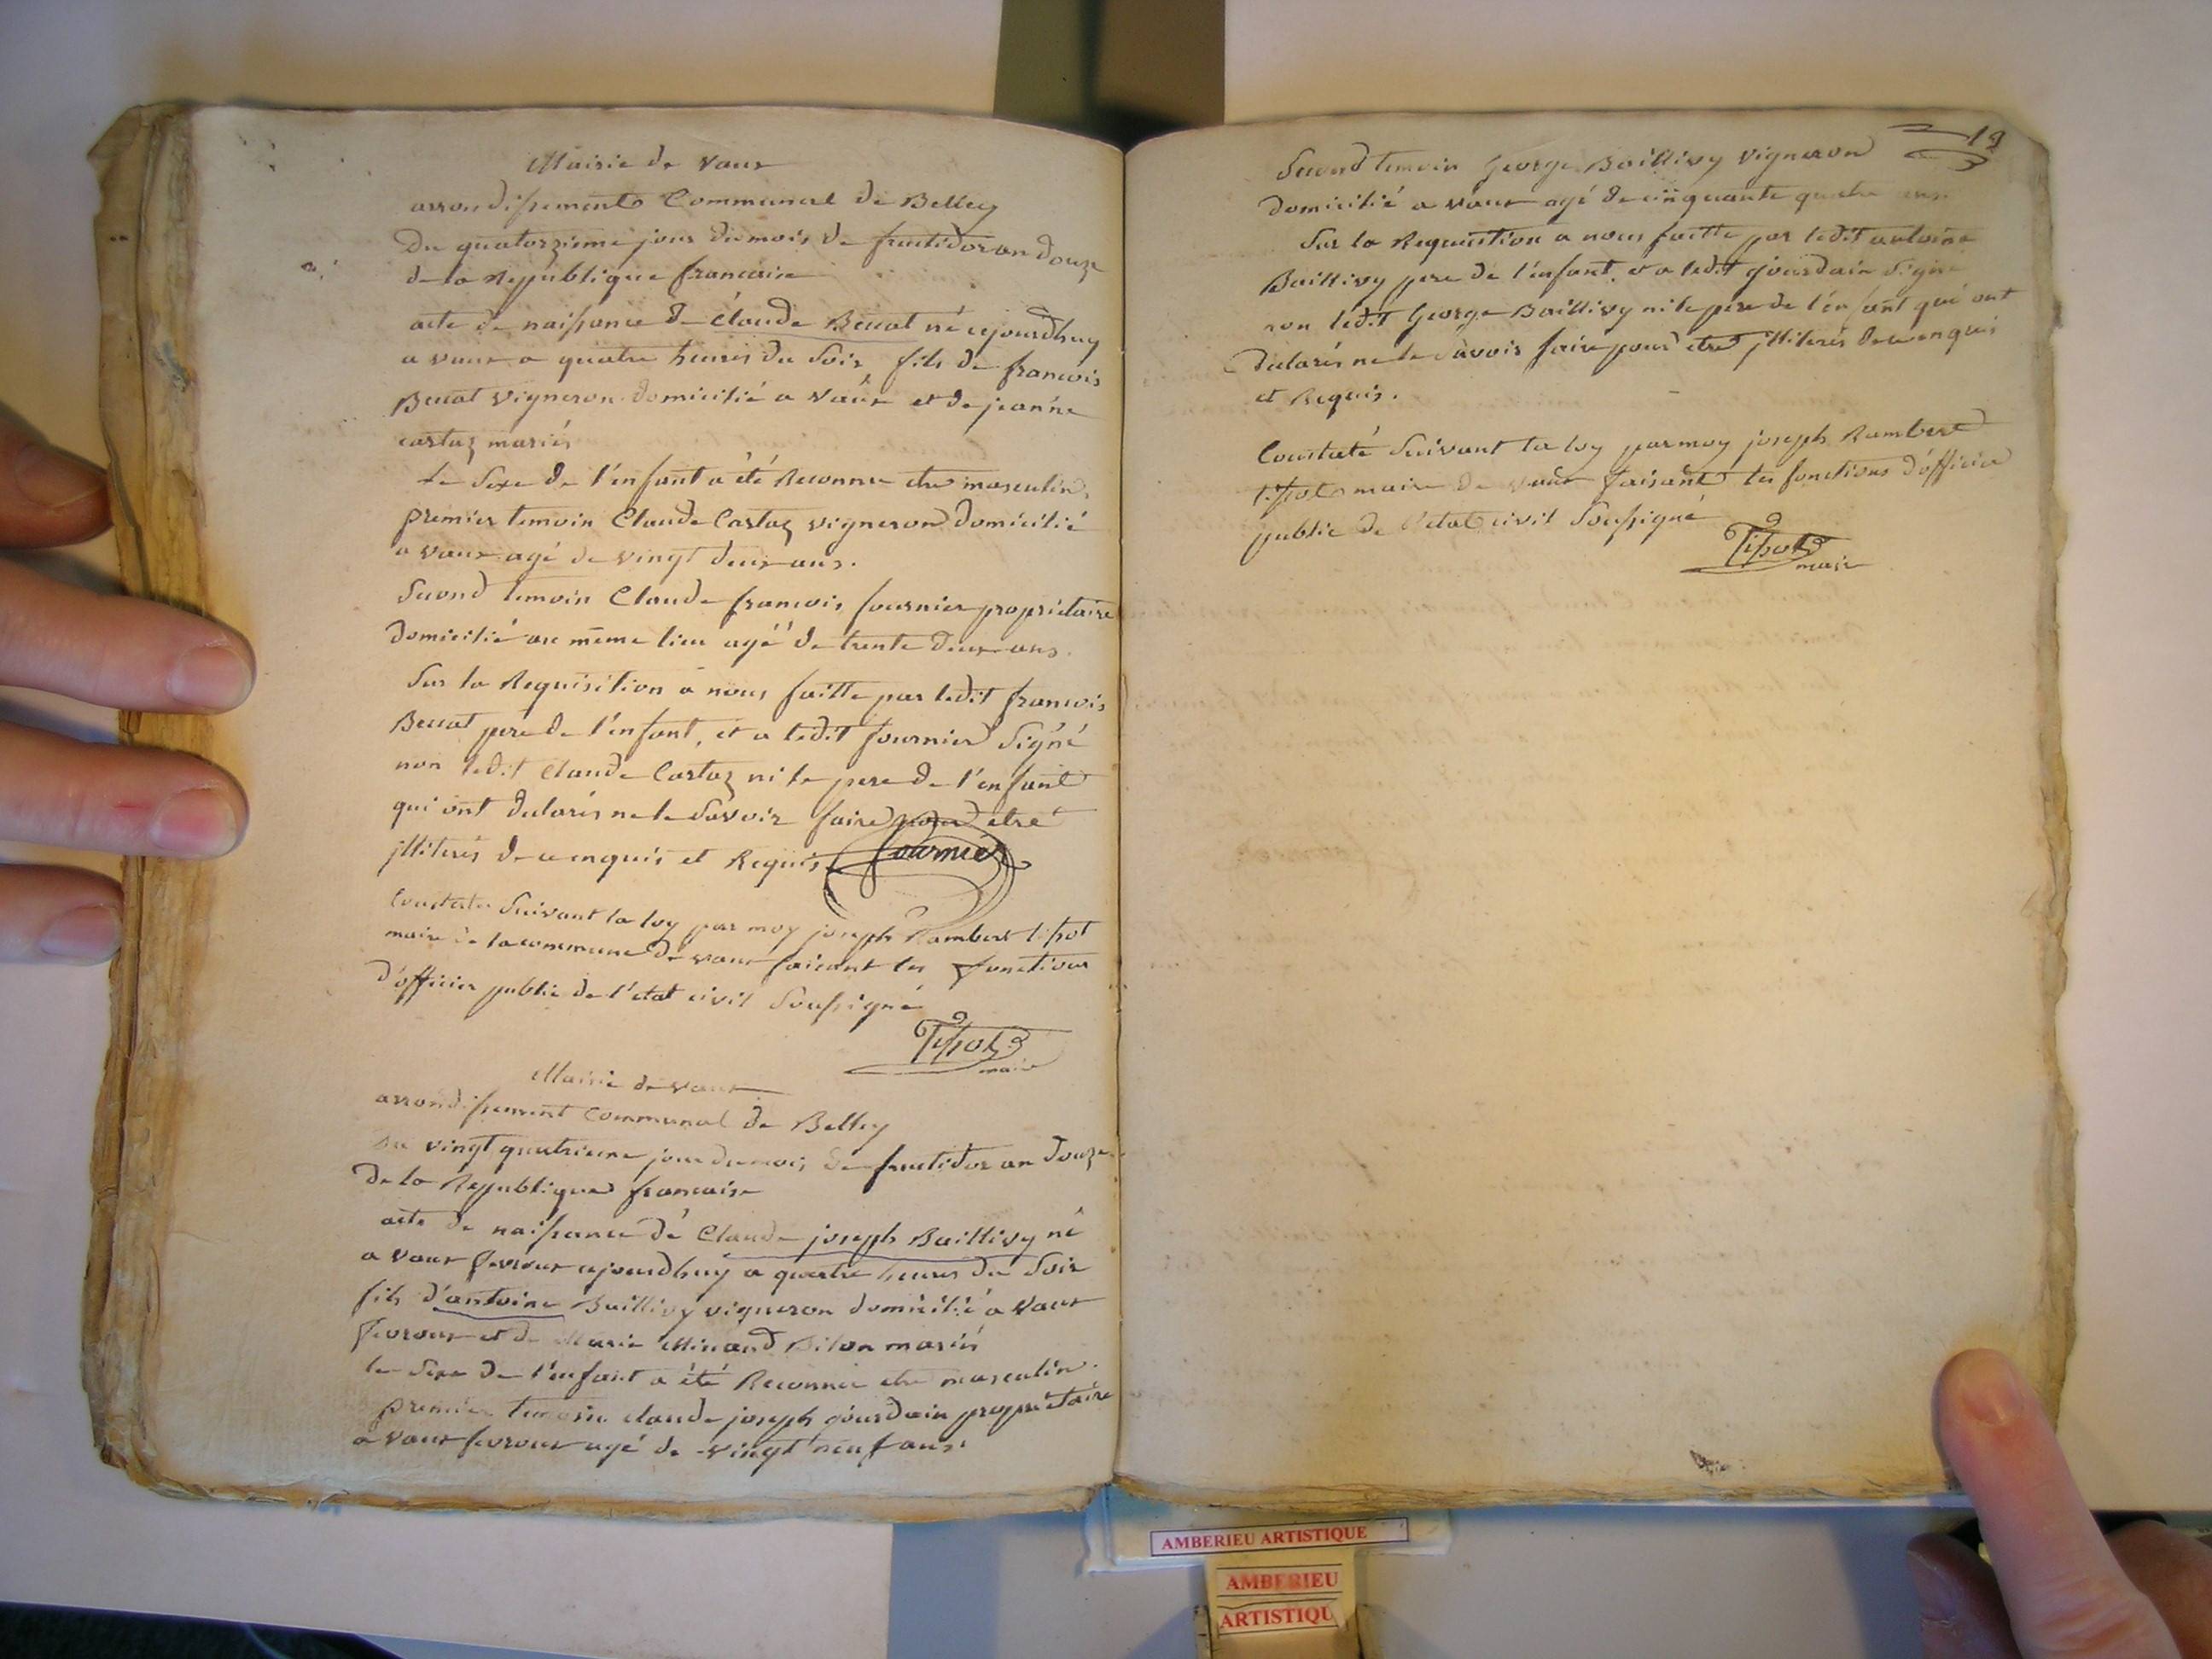 Mairie de vaux
arrondissement Communal de Belley
Du quatorzieme jour du mois de fructidor an douze
de la Republique francaise
acte de naissance de Claude Beuat né cejourdhuy
a vaux a quatre heures du Soir, fils de francois
Beuat vigneron domicilié a vaux et de jeanne
cartaz mariés
Le Sexe de l'enfant a été Reconnu etre masculin,
premier temoin Claude Cartaz vigneron domicilié
a vaux agé de vingt deux ans.
Second temoin Claude francois fournier propriétaire
domicilié au même lieu agé de trente deux ans.
Sur la Requisition a nous faitte par ledit francois
Beuat pere de l'enfant, et a ledit fournier Signé
non ledit Claude Cartaz ni le pere de l'enfant
qui ont declarés ne le Savoir faire pour etre
jlliterés de ce enquis et Requis fournier
Constaté Suivant la loy par moy joseph Rambert tissot
maire de la commune de vaux faisant les fonctions
d'officier public de l'etat civil Soussigné
Tissot
maire
Mairie de vaux
arrondissement Communal de Belley
Du vingt quatrieme jour du mois de fructidor an douze
de la Republique francaise
acte de naissance de Claude joseph Baillivy né
a vaux fevroux cejourdhuy a quatre heures du Soir
fils d'antoine Baillivy vigneron domicilié a vaux
fevroux et de Marie Minand mariés
le Sexe de l'enfant a été Reconnu etre masculin.
premier temoin claude joseph jourdain propriétaire
a vaux fevroux agé de vingt neuf ans.
19
Second temoin George Baillivy vigneron
domicilié a vaux agé de cinquante quatre ans.
Sur la Requisition a nous faitte par ledit antoine
Baillivy pere de l'enfant, et a ledit jourdain Signé
non ledit George Baillivy ni le pere de l'enfant qui ont
declarés ne le Savoir faire pour etre jlliterés de ce enquis
et Requis.
Constaté Suivant la loy par moy joseph Rambert
tissot maire de vaux faisant les fonctions d'officier
public de l'etat civil Soussigné
Tissot
maire
AMBERIEU ARTISTIQUE
AMBERIEU
ARTISTIQU